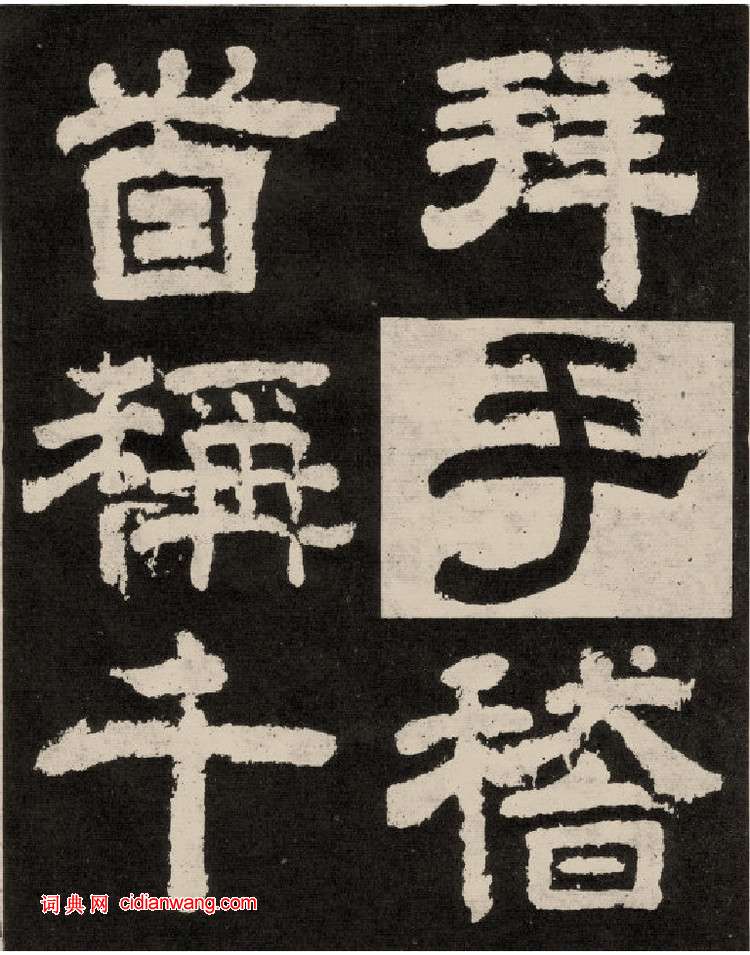 拜手稽
首稱千
词典网 cidianwang.com